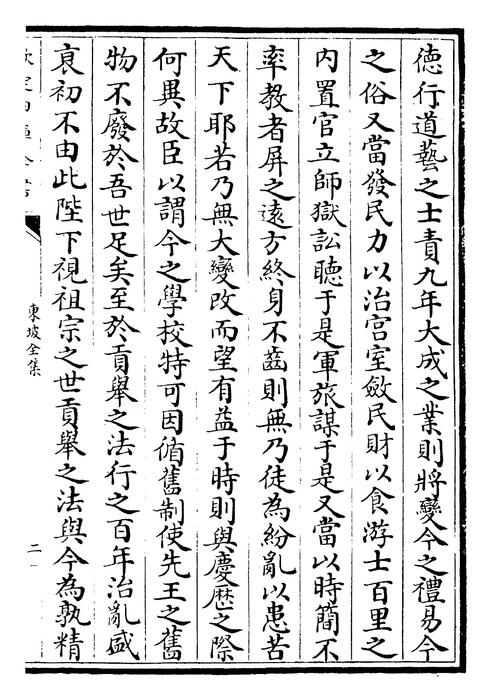 德行道藝之士責九年大成之業則將變今之禮易今
之俗又當發民力以治宫室斂民財以食游士百里之
内置官立師獄訟聽于是軍旅謀于是又當以時簡不
率教者屏之遠方終身不齒則無乃徒為紛亂以患苦
天下耶若乃無大變改而望有益于時則與慶歴之際
何異故臣以謂今之學校特可因循舊制使先王之舊
物不廢於吾世足矣至於貢舉之法行之百年治亂盛
衰初不由此陛下視祖宗之世貢舉之法與今為孰精
東坡全集
二